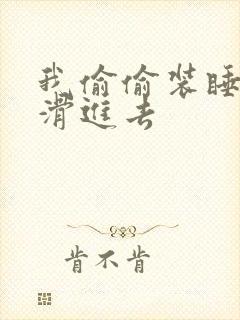 我偷偷装睡
滑進去
肯不肯